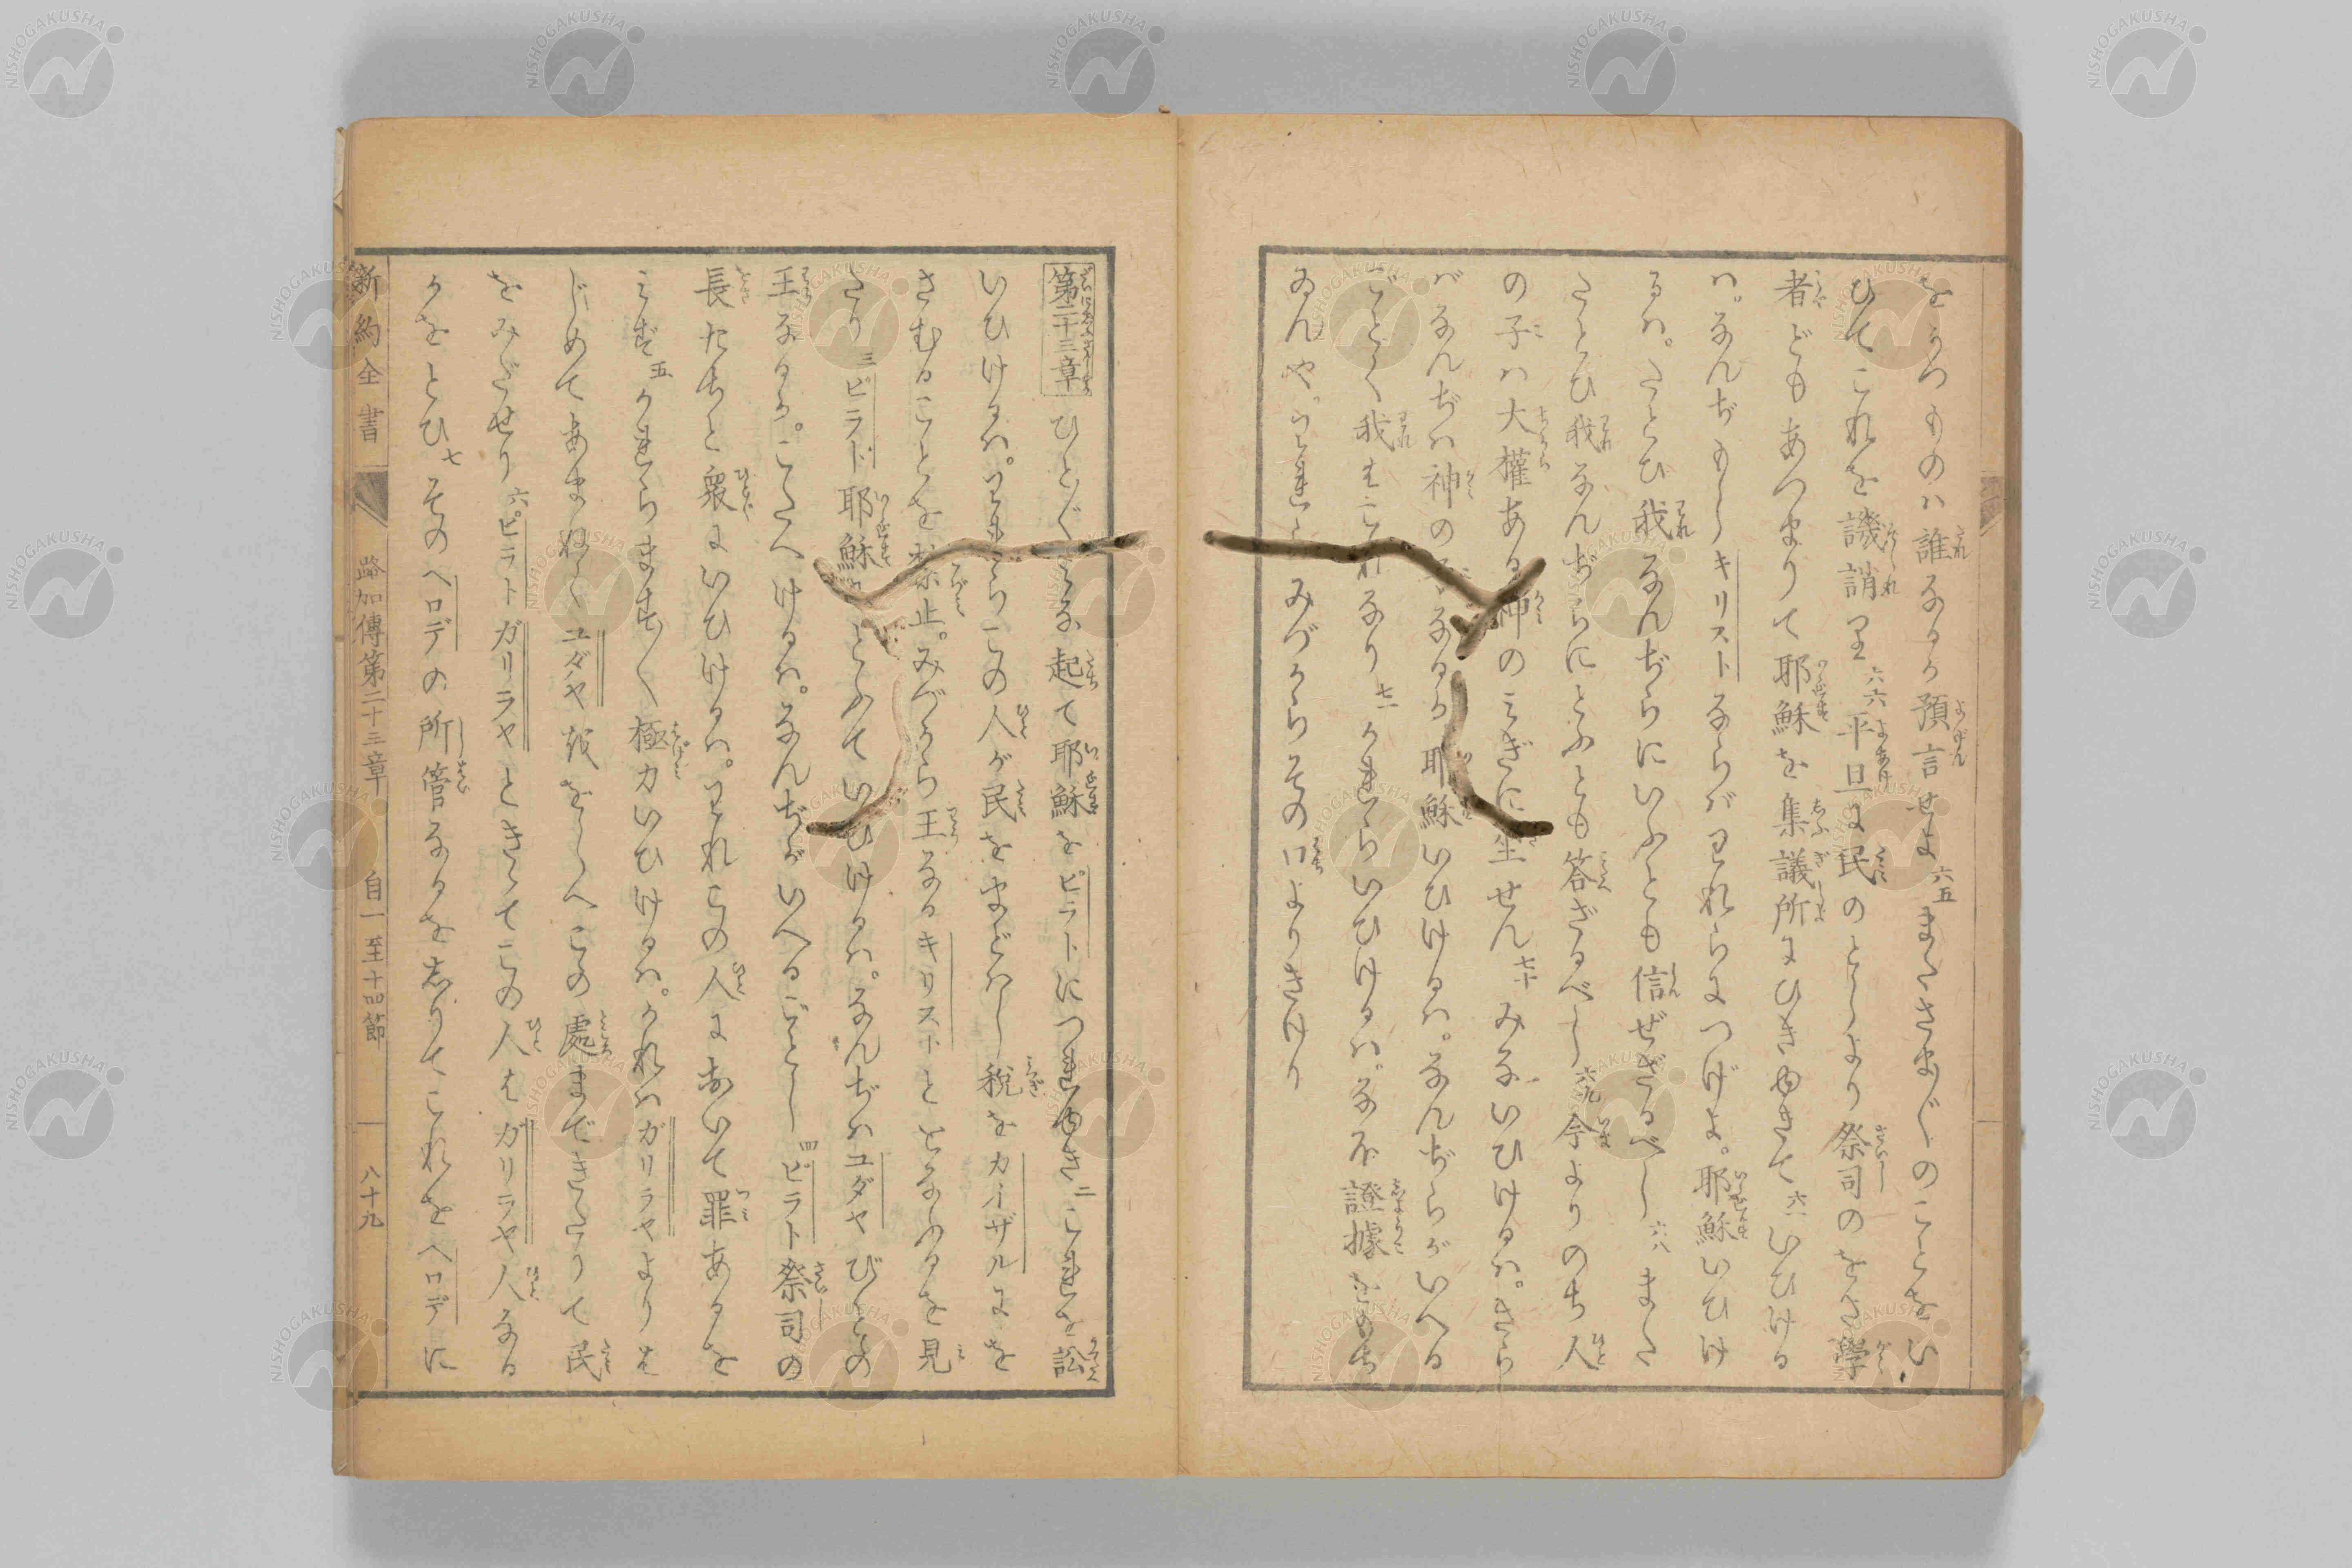 をうつものハ誰なるか預言せよ六五またさまぐのことをい
ひてこれを譏誚里六六平旦に民のとしより祭司のをさ學
者どもあつまりて耶穌を集議所にひきゆきて六七いひける
ハ。なんぢもしキリストならバわれらにつげよ。耶穌いひけ
るハ。たとひ我なんぢらにいふとも信ぜざるべし六八また
たとひ我なんぢらにとふとも答ざるべし六九今よりのち人
の子ハ大權ある神のみぎに坐せん七十みないひけるハ。さら
バなんぢハ神の子なるか耶穌いひけるハ。なんぢらがいへる
ごとく我ハこれなり七一かれらいひけるハ。なほ證據をもち
ゐんや。われらみづからその口よりきけり
第二十三章 ひとぐみな起て耶穌をピラトにつれゆき二これを訟
いひけるハ。われらこの人が民をまどハし税をカイザルにを
さむることを禁止。みづから王なるキリストととなふるを見
たり三ピラト耶穌にとふていひけるハ。なんぢハユダヤびとの
王なるか。こたへけるハ。なんぢがいへるごとし四ピラト祭司の
長たちと衆にいひけるハ。われこの人において罪あるを
みず五かれらますく極力いひけるハ。かれハガリラヤよりは
じめてあまねくユダヤ我をしへこの處まできたりて民
をみだせり六ピラトガリラヤときゝてこの人はガリラヤ人なる
かをとひ七そのヘロデの所管なるを志りてこれをヘロデに
新約全書 路加傳第二十三章 自一至十四節 八十九
NISHOGAKUSHA